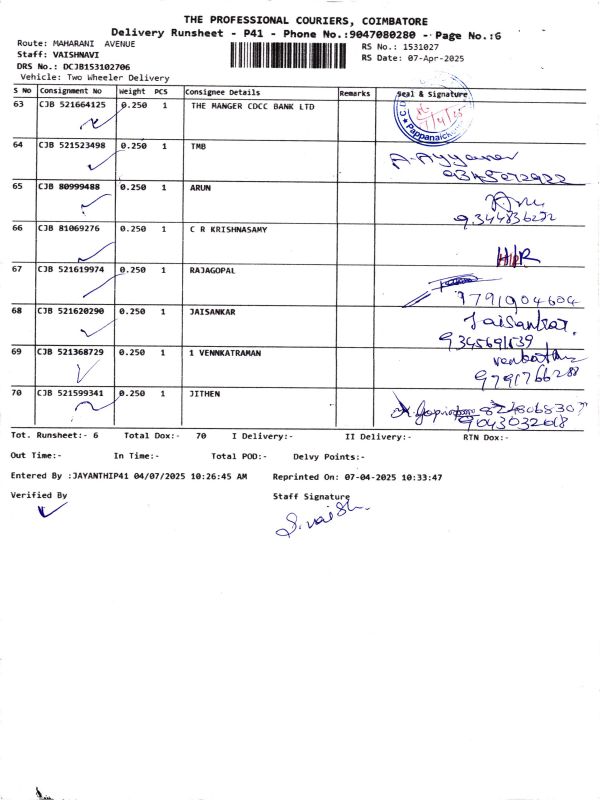 THE PROFESSIONAL COURIERS, COIMBATORE
Delivery Runsheet - P41 - Phone No.:9047080280 - Page No.:6
Route: MAHARANI AVENUE
RS No.: 1531027
Staff: VAISHNAVI
RS Date: 07-Apr-2025
DRS No.: DCJB153102706
Vehicle: Two Wheeler Delivery
S No Consignment No Weight PCS Consignee Details Remarks Seal & Signature
63 CJB 521664125 0.250 1 THE MANGER CDCC BANK LTD
64 CJB 521523498 0.250 1 TMB A. Ayyanar
65 CJB 80999488 0.250 1 ARUN
9344836272
66 CJB 81069276 0.250 1 C R KRISHNASAMY
H/R
67 CJB 521619974 0.250 1 RAJAGOPAL
7791904604
68 CJB 521620290 0.250 1 JAISANKAR Jaisankar.
69 CJB 521368729 0.250 1 1 VENNKATRAMAN
9791766288
70 CJB 521599341 0.250 1 JITHEN
9043032618
Tot. Runsheet:- 6 Total Dox:- 70 I Delivery:- II Delivery:- RTN Dox:-
Out Time:- In Time:- Total POD:- Delvy Points:-
Entered By :JAYANTHIP41 04/07/2025 10:26:45 AM Reprinted On: 07-04-2025 10:33:47
Verified By Staff Signature
S.vaish